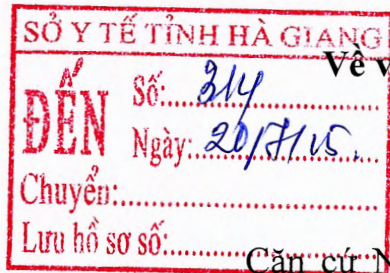 SỞ Y TẾ TỈNH HÀ GIANG
Về v
ĐẾN
Số:.....314
Ngày:.20/7/15.
Chuyển:
Lưu hồ sơ số:
Căn cứ N